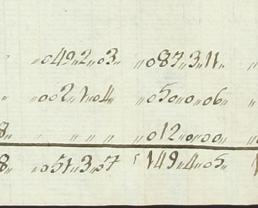 „049„2„03„ „087„3„11„ „
„ „002„1„04„ „050„0„06„ „
8„ „ „ „ „ „012„0„00„ „0
8„ „051„3„07 149„4„05 „1